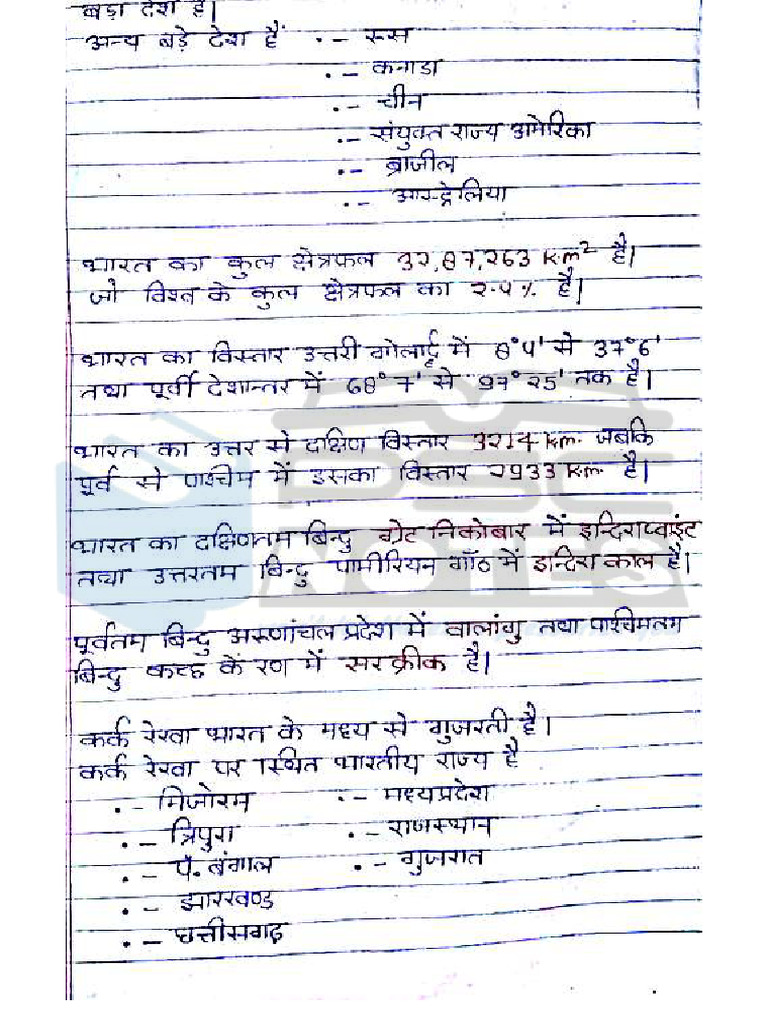 बड़ा देश है।
अन्य बड़े देश हैं .- रूस
.- कनाडा
.- चीन
.- संयुक्त राज्य अमेरिका
.- ब्राजील
.- आस्ट्रेलिया
भारत का कुल क्षेत्रफल 32,87,263 K.m² है।
जो विश्व के कुल क्षेत्रफल का 2.4% है।
भारत का विस्तार उत्तरी गोलार्द्ध में 8°4' से 37°6'
तथा पूर्वी देशान्तर में 68°7' से 97°25' तक है।
भारत का उत्तर से दक्षिण विस्तार 3214 km. जबकि
पूर्व से पश्चिम में इसका विस्तार 2933 K.m. है।
भारत का दक्षिणतम बिन्दु ग्रेट निकोबार में इन्दिराप्वाइंट
तथा उत्तरतम बिन्दु पामीरियन गाँठ में इन्दिरा काल है।
पूर्वतम बिन्दु अरुणांचल प्रदेश में वालांगु तथा पश्चिमतम
बिन्दु कच्छ के रण में सरक्रीक है।
कर्क रेखा भारत के मध्य से गुजरती है।
कर्क रेखा पर स्थित भारतीय राज्य है
.- मिजोरम .- मध्यप्रदेश
.- त्रिपुरा .- राजस्थान
.- पं. बंगाल .- गुजरात
.- झारखण्ड
.- छत्तीसगढ़
PSC
NOTES